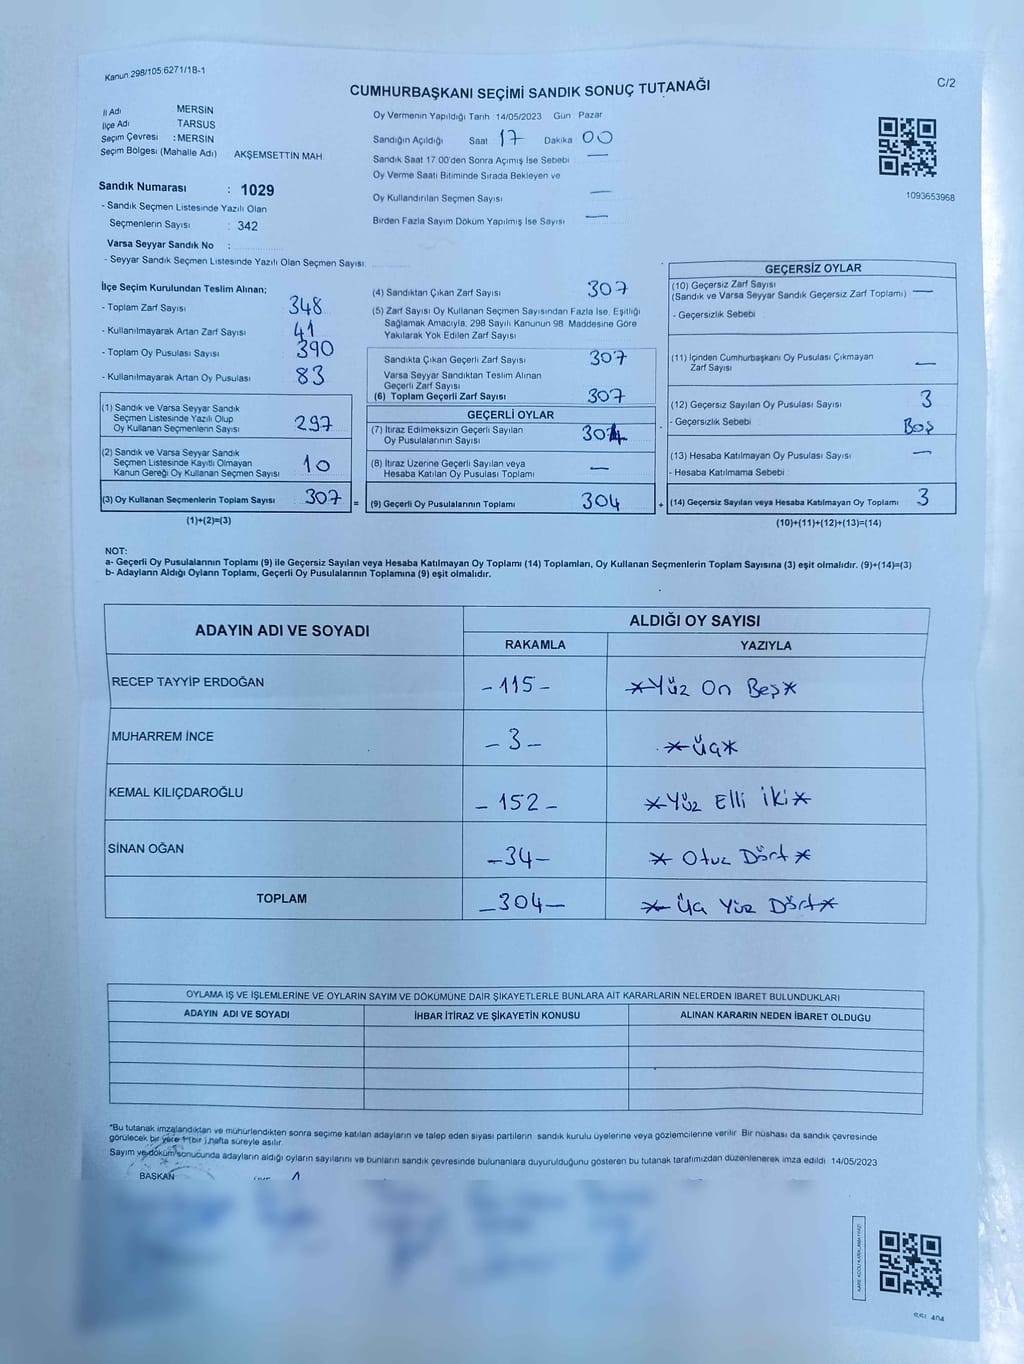 Kanun 298/105 6271/18-1
CUMHURBAŞKANI SEÇİMİ SANDIK SONUÇ TUTANAĞI
C/2
İl Adı MERSİN
İlçe Adı TARSUS
Seçim Çevresi : MERSİN
Seçim Bölgesi (Mahalle Adı) AKŞEMSETTİN MAH.
Oy Vermenin Yapıldığı Tarih 14/05/2023 Gün Pazar
Sandığın Açıldığı Saat 17 Dakika 00
Sandık Saat 17 00'den Sonra Açımış İse Sebebi —
Oy Verme Saati Bitiminde Sırada Bekleyen ve
Oy Kullandırılan Seçmen Sayısı —
Birden Fazla Sayım Döküm Yapılmış İse Sayısı —
1093653968
Sandık Numarası : 1029
- Sandık Seçmen Listesinde Yazılı Olan
Seçmenlerin Sayısı : 342
Varsa Seyyar Sandık No :
- Seyyar Sandık Seçmen Listesinde Yazılı Olan Seçmen Sayısı:
İlçe Seçim Kurulundan Teslim Alınan;
- Toplam Zarf Sayısı 348
- Kullanılmayarak Artan Zarf Sayısı 41
- Toplam Oy Pusulası Sayısı 390
- Kullanılmayarak Artan Oy Pusulası 83
(1) Sandık ve Varsa Seyyar Sandık
Seçmen Listesinde Yazılı Olup
Oy Kullanan Seçmenlerin Sayısı 297
(2) Sandık ve Varsa Seyyar Sandık
Seçmen Listesinde Kayıtlı Olmayan
Kanun Gereği Oy Kullanan Seçmen Sayısı 10
(3) Oy Kullanan Seçmenlerin Toplam Sayısı 307 =
(1)+(2)=(3)
(4) Sandıktan Çıkan Zarf Sayısı 307
(5) Zarf Sayısı Oy Kullanan Seçmen Sayısından Fazla İse, Eşitliği
Sağlamak Amacıyla, 298 Sayılı Kanunun 98 Maddesine Göre
Yakılarak Yok Edilen Zarf Sayısı
Sandıkta Çıkan Geçerli Zarf Sayısı 307
Varsa Seyyar Sandıktan Teslim Alınan
Geçerli Zarf Sayısı
(6) Toplam Geçerli Zarf Sayısı 307
GEÇERLİ OYLAR
(7) İtiraz Edilmeksizin Geçerli Sayılan
Oy Pusulalarının Sayısı 304
(8) İtiraz Üzerine Geçerli Sayılan veya
Hesaba Katılan Oy Pusulası Toplamı —
(9) Geçerli Oy Pusulalarının Toplamı 304 +
GEÇERSİZ OYLAR
(10) Geçersiz Zarf Sayısı
(Sandık ve Varsa Seyyar Sandık Geçersiz Zarf Toplamı) —
- Geçersizlik Sebebi
(11) İçinden Cumhurbaşkanı Oy Pusulası Çıkmayan
Zarf Sayısı —
(12) Geçersiz Sayılan Oy Pusulası Sayısı 3
- Geçersizlik Sebebi Boş
(13) Hesaba Katılmayan Oy Pusulası Sayısı —
- Hesaba Katılmama Sebebi
(14) Geçersiz Sayılan veya Hesaba Katılmayan Oy Toplamı 3
(10)+(11)+(12)+(13)=(14)
NOT:
a- Geçerli Oy Pusulalarının Toplamı (9) ile Geçersiz Sayılan veya Hesaba Katılmayan Oy Toplamı (14) Toplamları, Oy Kullanan Seçmenlerin Toplam Sayısına (3) eşit olmalıdır. (9)+(14)=(3)
b- Adayların Aldığı Oyların Toplamı, Geçerli Oy Pusulalarının Toplamına (9) eşit olmalıdır.
ADAYIN ADI VE SOYADI ALDIĞI OY SAYISI
RAKAMLA YAZIYLA
RECEP TAYYİP ERDOĞAN -115- *Yüz On Beş*
MUHARREM İNCE -3- *Üç*
KEMAL KILIÇDAROĞLU -152- *Yüz Elli İki*
SİNAN OĞAN -34- * Otuz Dört *
TOPLAM -304- * Üç Yüz Dört*
OYLAMA İŞ VE İŞLEMLERİNE VE OYLARIN SAYIM VE DÖKÜMÜNE DAİR ŞİKAYETLERLE BUNLARA AİT KARARLARIN NELERDEN İBARET BULUNDUKLARI
ADAYIN ADI VE SOYADI İHBAR İTİRAZ VE ŞİKAYETİN KONUSU ALINAN KARARIN NEDEN İBARET OLDUĞU
*Bu tutanak imzalandıktan ve mühürlendikten sonra seçime katılan adayların ve talep eden siyasi partilerin sandık kurulu üyelerine veya gözlemcilerine verilir Bir nüshası da sandık çevresinde
görülecek bir yere 1 (bir ) hafta süreyle asılır.
Sayım ve döküm sonucunda adayların aldığı oyların sayılarını ve bunların sandık çevresinde bulunanlara duyurulduğunu gösteren bu tutanak tarafımızdan düzenlenerek imza edildi 14/05/2023
BAŞKAN